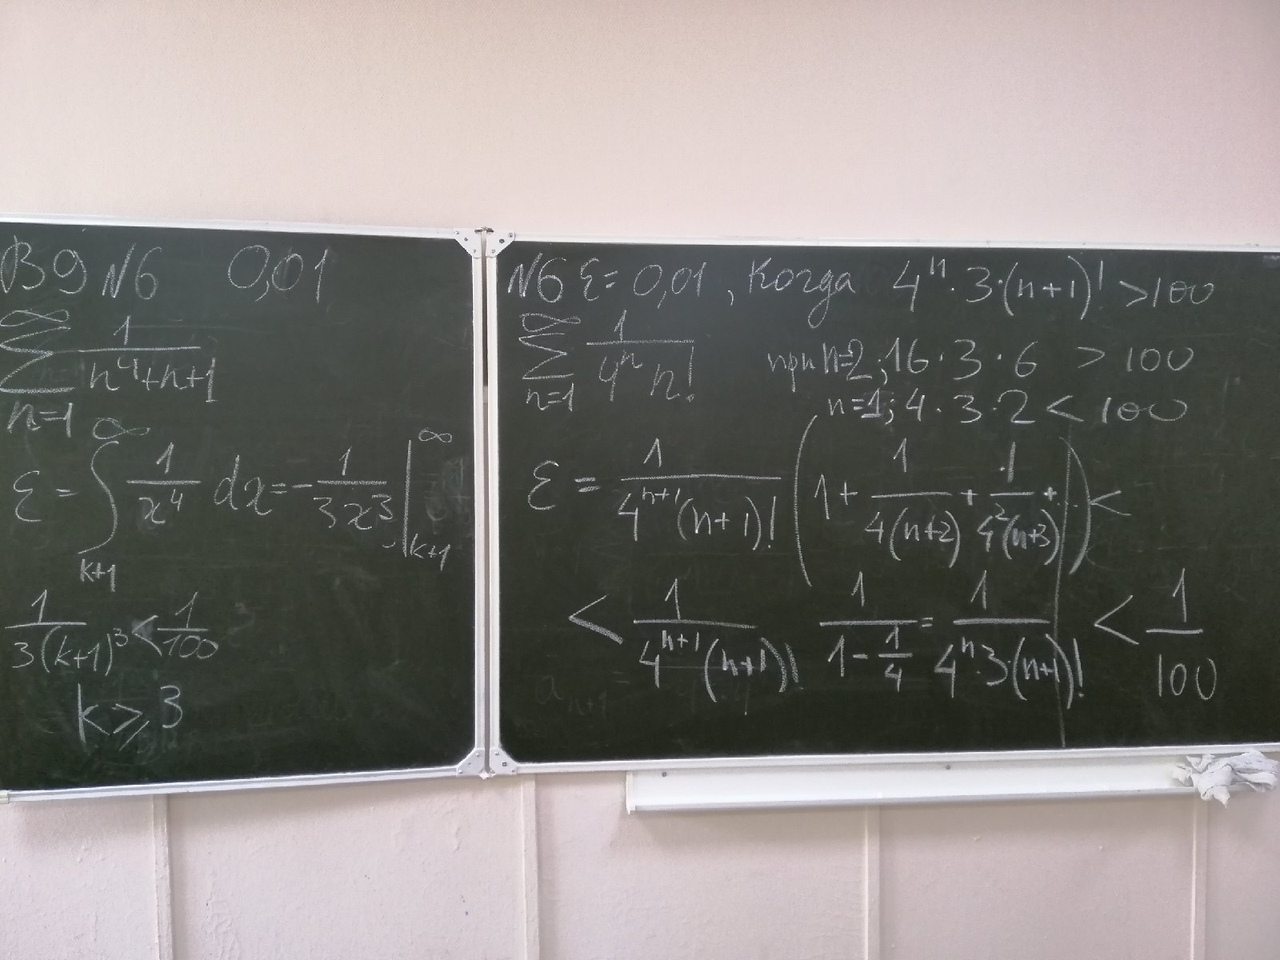 В9 №6 0,01
∞
∑ 1/(n⁴+n+1)
n=1
ε = ∫_{k+1}^{∞} 1/x⁴ dx = - 1/(3x³) |_{k+1}^{∞}
1/(3(k+1)³) < 1/100
k ⩾ 3
№6 ε = 0,01, Когда 4ⁿ·3·(n+1)! > 100
∞
∑ 1/(4ⁿ n!)
n=1
при n=2; 16·3·6 > 100
n=1; 4·3·2 < 100
ε = 1/(4ⁿ⁺¹(n+1)!) (1 + 1/(4(n+2)) + 1/(4²(n+3)) + ) <
< 1/(4ⁿ⁺¹(n+1)!) 1/(1 - 1/4) = 1/(4ⁿ·3·(n+1)!) < 1/100